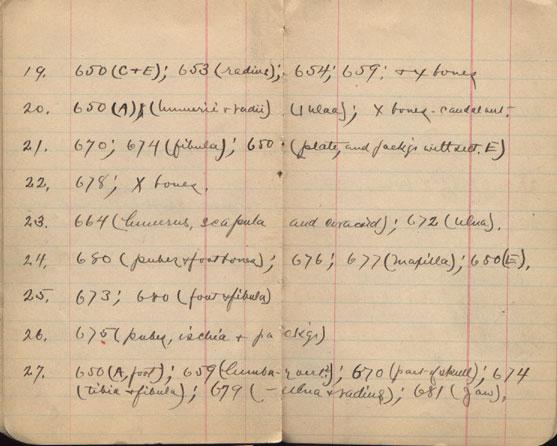 19. 650 (C+E); 653 (radius); 654; 659; + X bones
20. 650 (A); (humerii + radii) (1 ulna); X bones - caudal vert.
21. 670; 674 (fibula); 650 (plate, and pack'gs with sect. E)
22. 678; X bones.
23. 664 (humerus, scapula and coracoid); 672 (ulna).
24. 680 (pubes + foot bones); 676; 677 (maxilla); 650 (E).
25. 673; 680 (foot + fibula)
26. 675 (pubes, ischia + pack'gs)
27. 650 (A, foot); 659 (lumbar vert.); 670 (part of skull); 674
(tibia + fibula); 679 (- ulna + radius); 681 (jaw).